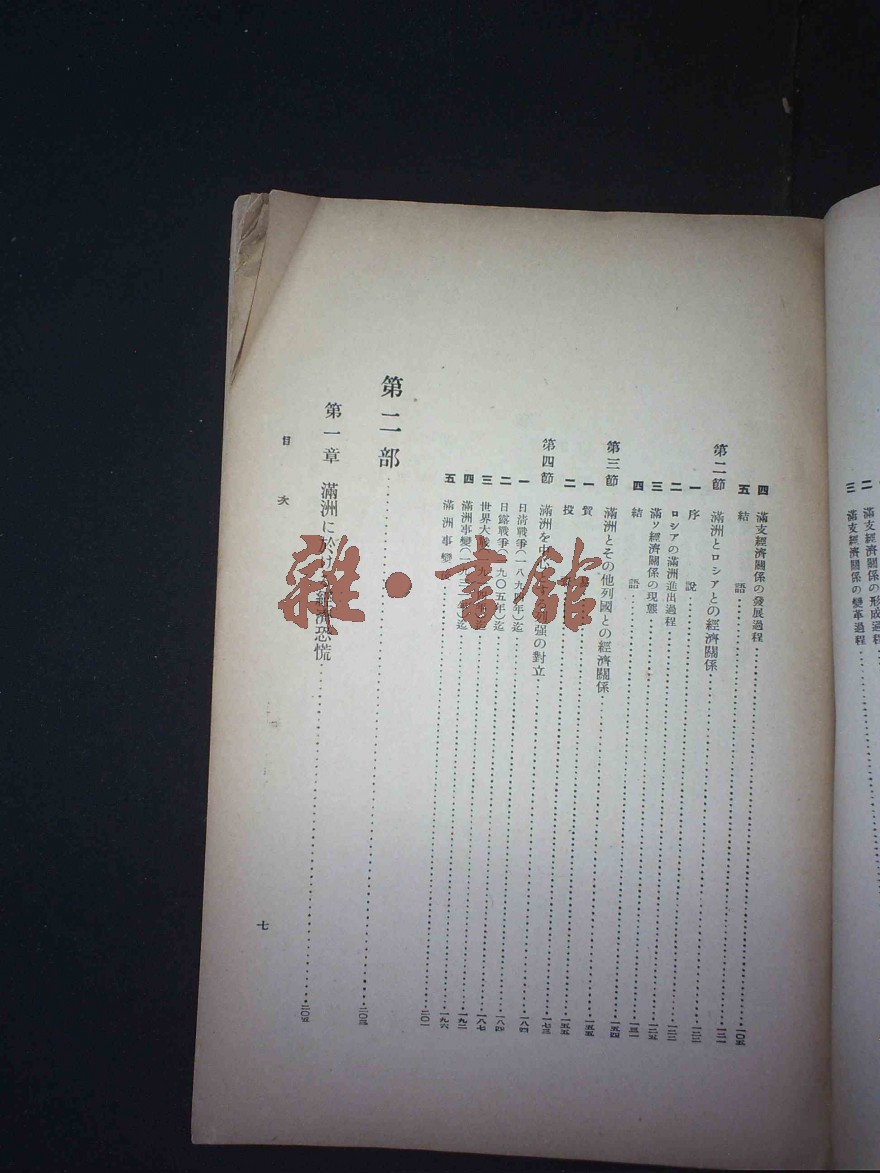 二 滿支經濟關係の形成過程
三 滿支經濟關係の變革過程
四 滿支經濟關係の發展過程……一〇五
五 結語……一二一
第二節 滿洲とロシアとの經濟關係……一二二
一 序說……一二二
二 ロシアの滿洲進出過程……一二五
三 滿ソ經濟關係の現態……一三一
四 結語……一五四
第三節 滿洲とその他列國との經濟關係……一五五
一 貿……一五五
二 投……一七三
第四節 滿洲を中心と列强の對立……一八四
一 日淸戰爭(一八九四年)迄……一八四
二 日露戰爭(一九〇五年)迄……一八七
三 世界大戰迄……一九二
四 滿洲事變迄……一九六
五 滿洲事變……二〇一
第二部……二〇三
第一章 滿洲に於ける經濟恐慌……二〇五
目次
七
雜・書館